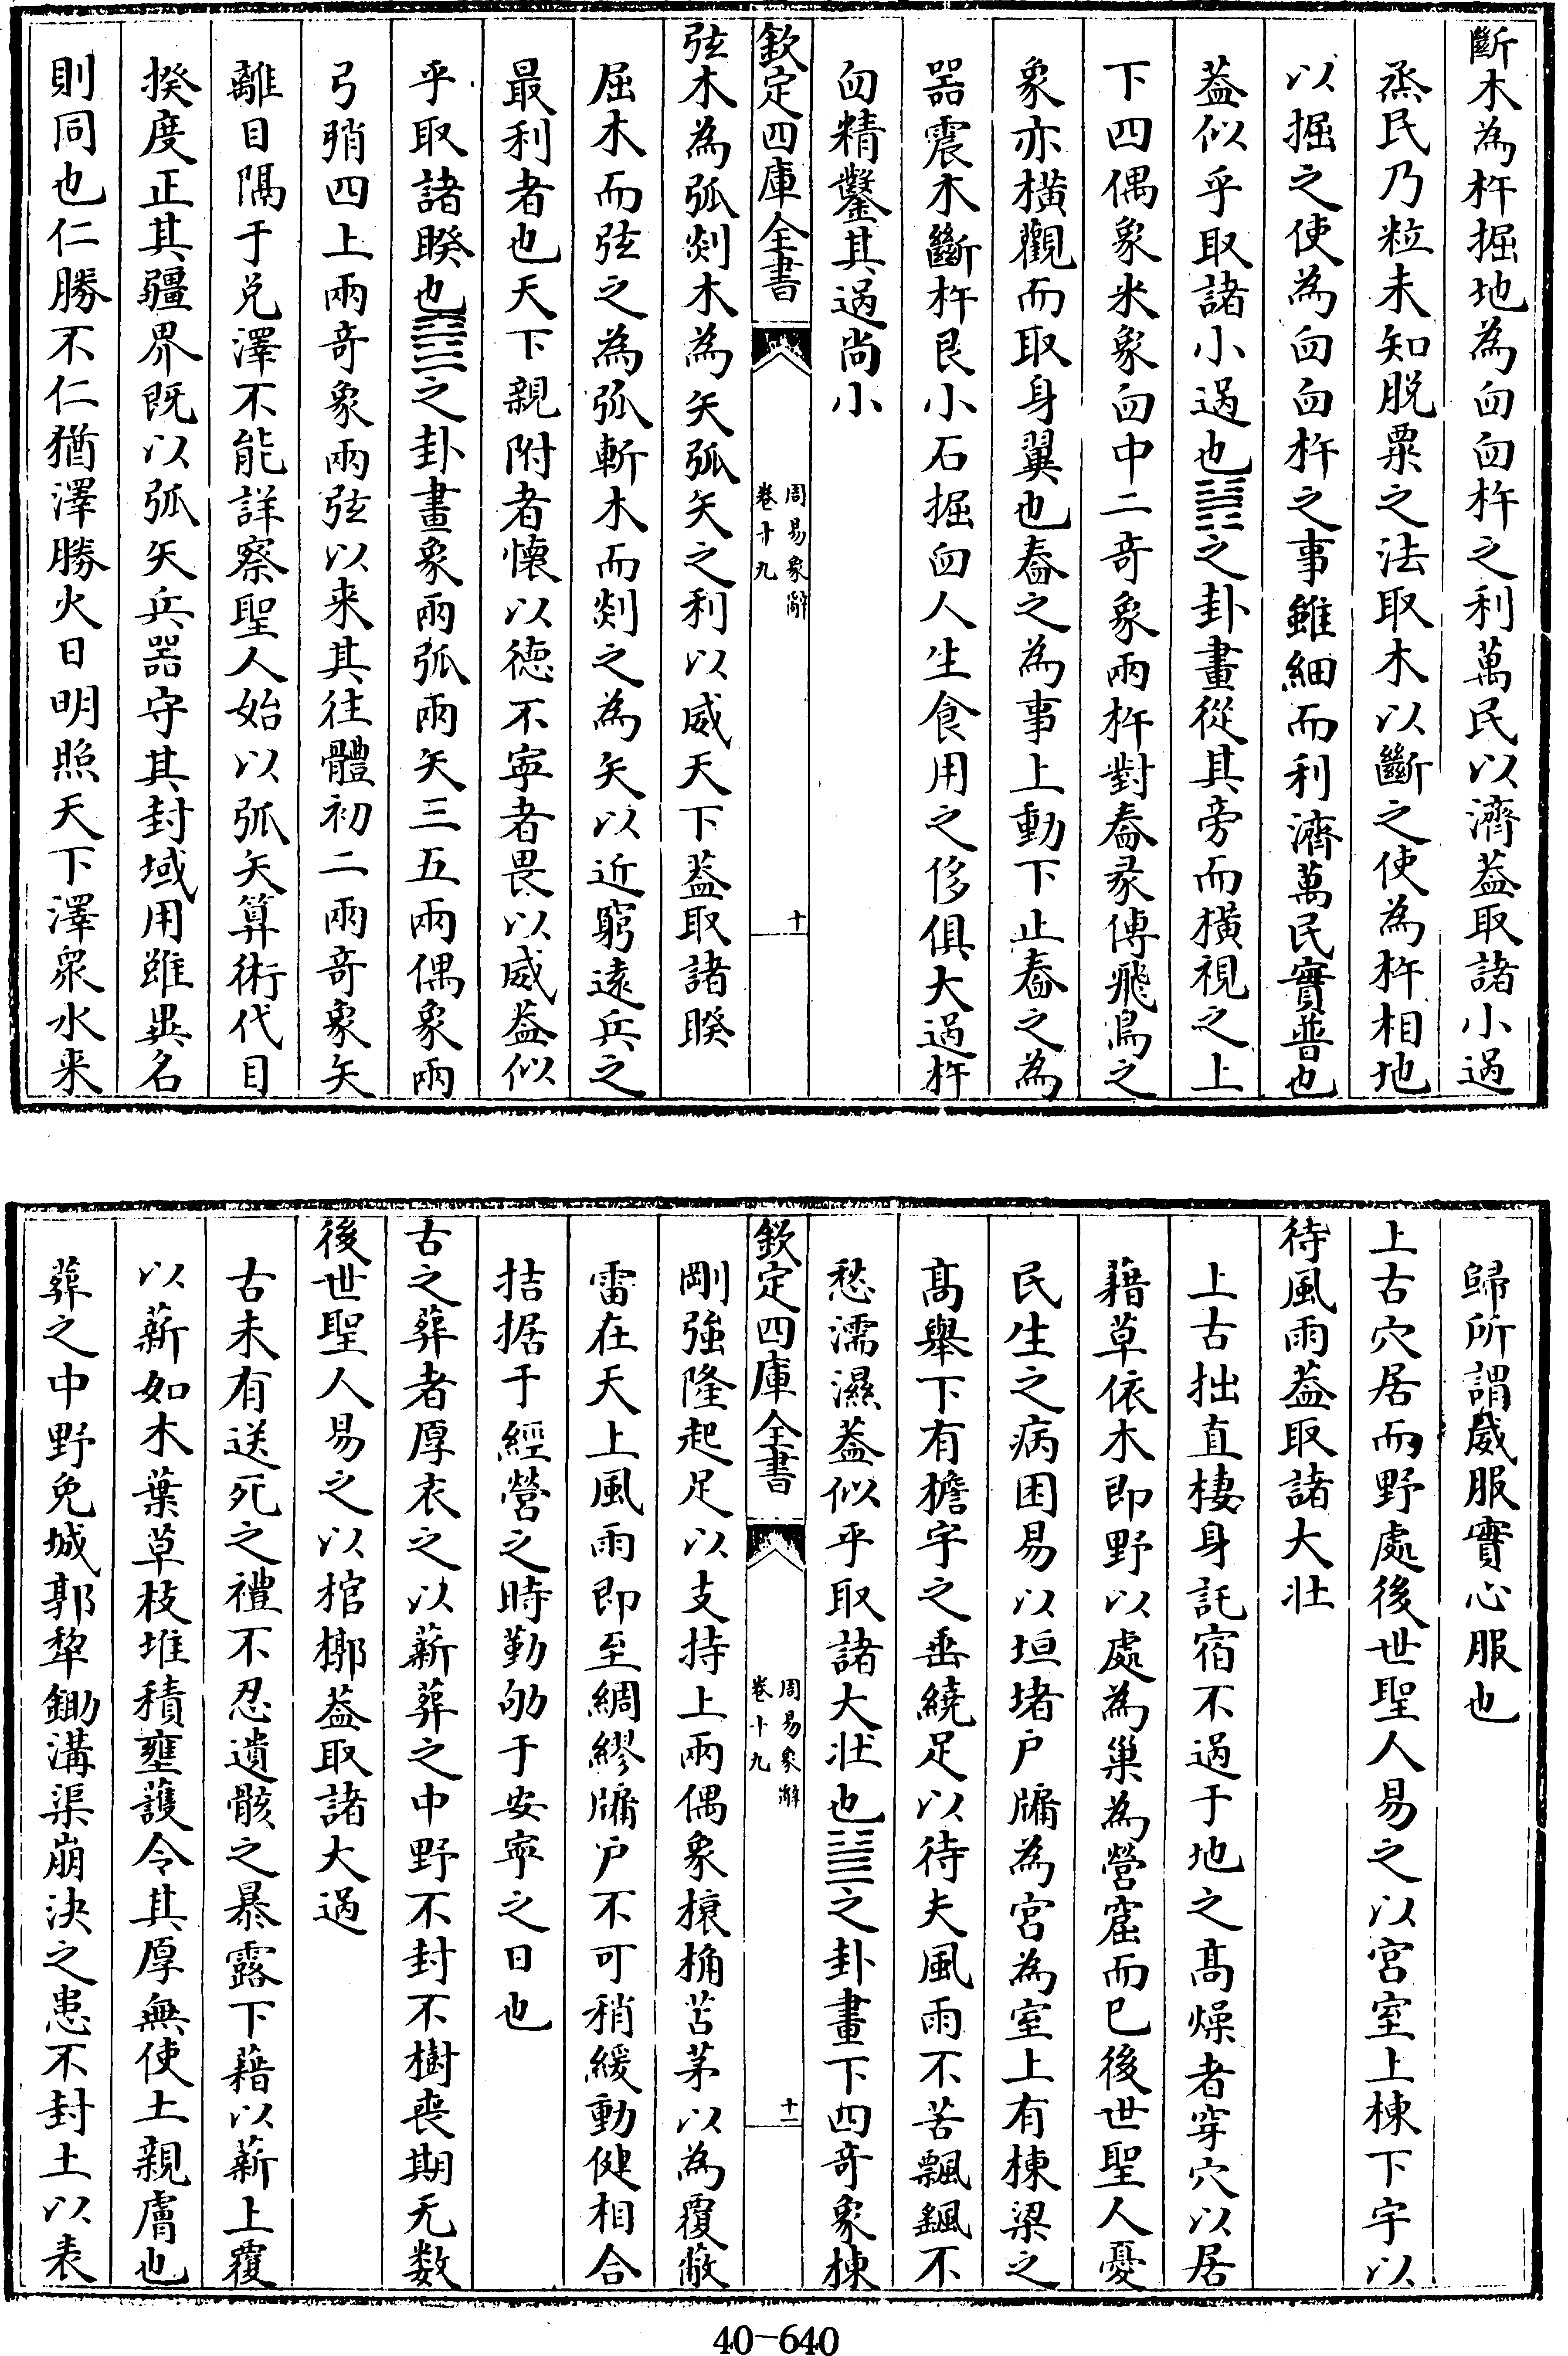 斷木為杵掘地為臼臼杵之利萬民以濟葢取諸小過
烝民乃粒未知脱粟之法取木以斷之使為杵相地
以掘之使為臼臼杵之事雖細而利濟萬民實普也
葢似乎取諸小過也䷽之卦畫從其旁而横視之上
下四偶象米象臼中二竒象兩杵對舂彖傳飛鳥之
象亦橫觀而取身翼也舂之為事上動下止舂之為
器震木斷杵艮小石掘臼人生食用之侈俱大過杵
臼精鑿其過尚小
欽定四庫全書
周易象辭
卷十九
十
弦木為弧剡木為矢弧矢之利以威天下葢取諸睽
屈木而弦之為弧斬木而剡之為矢以近窮遠兵之
最利者也天下親附者懷以德不寧者畏以威葢似
乎取諸睽也䷥之卦畫象兩弧兩矢三五兩偶象兩
弓弰四上兩竒象兩弦以来其往體初二兩竒象矢
離目隔于兑澤不能詳察聖人始以弧矢算術代目
揆度正其疆界既以弧矢兵器守其封域用雖異名
則同也仁勝不仁猶澤勝火日明照天下澤衆水来
歸所謂威服實心服也
上古穴居而野處後世聖人易之以宫室上棟下宇以
待風雨葢取諸大壯
上古拙直棲身託宿不過于地之髙燥者穿穴以居
藉草依木即野以處為巢為營窟而已後世聖人憂
民生之病困易以垣堵户牖為宫為室上有棟梁之
髙舉下有檐宇之垂繞足以待夫風雨不苦飄颻不
愁濡濕葢似乎取諸大壯也䷡之卦畫下四竒象棟
欽定四庫全書
周易象辭
卷十九
十一
剛強隆起足以支持上兩偶象榱桷苫茅以為覆蔽
雷在天上風雨即至綢繆牖户不可稍緩動健相合
拮据于經營之時勤劬于安寧之日也
古之葬者厚衣之以薪葬之中野不封不樹喪期无数
後世聖人易之以棺槨葢取諸大過
古未有送死之禮不忍遺骸之暴露下藉以薪上覆
以薪如木葉草枝堆積壅護令其厚無使土親膚也
葬之中野免城郭犂鋤溝渠崩決之患不封土以表
40-640